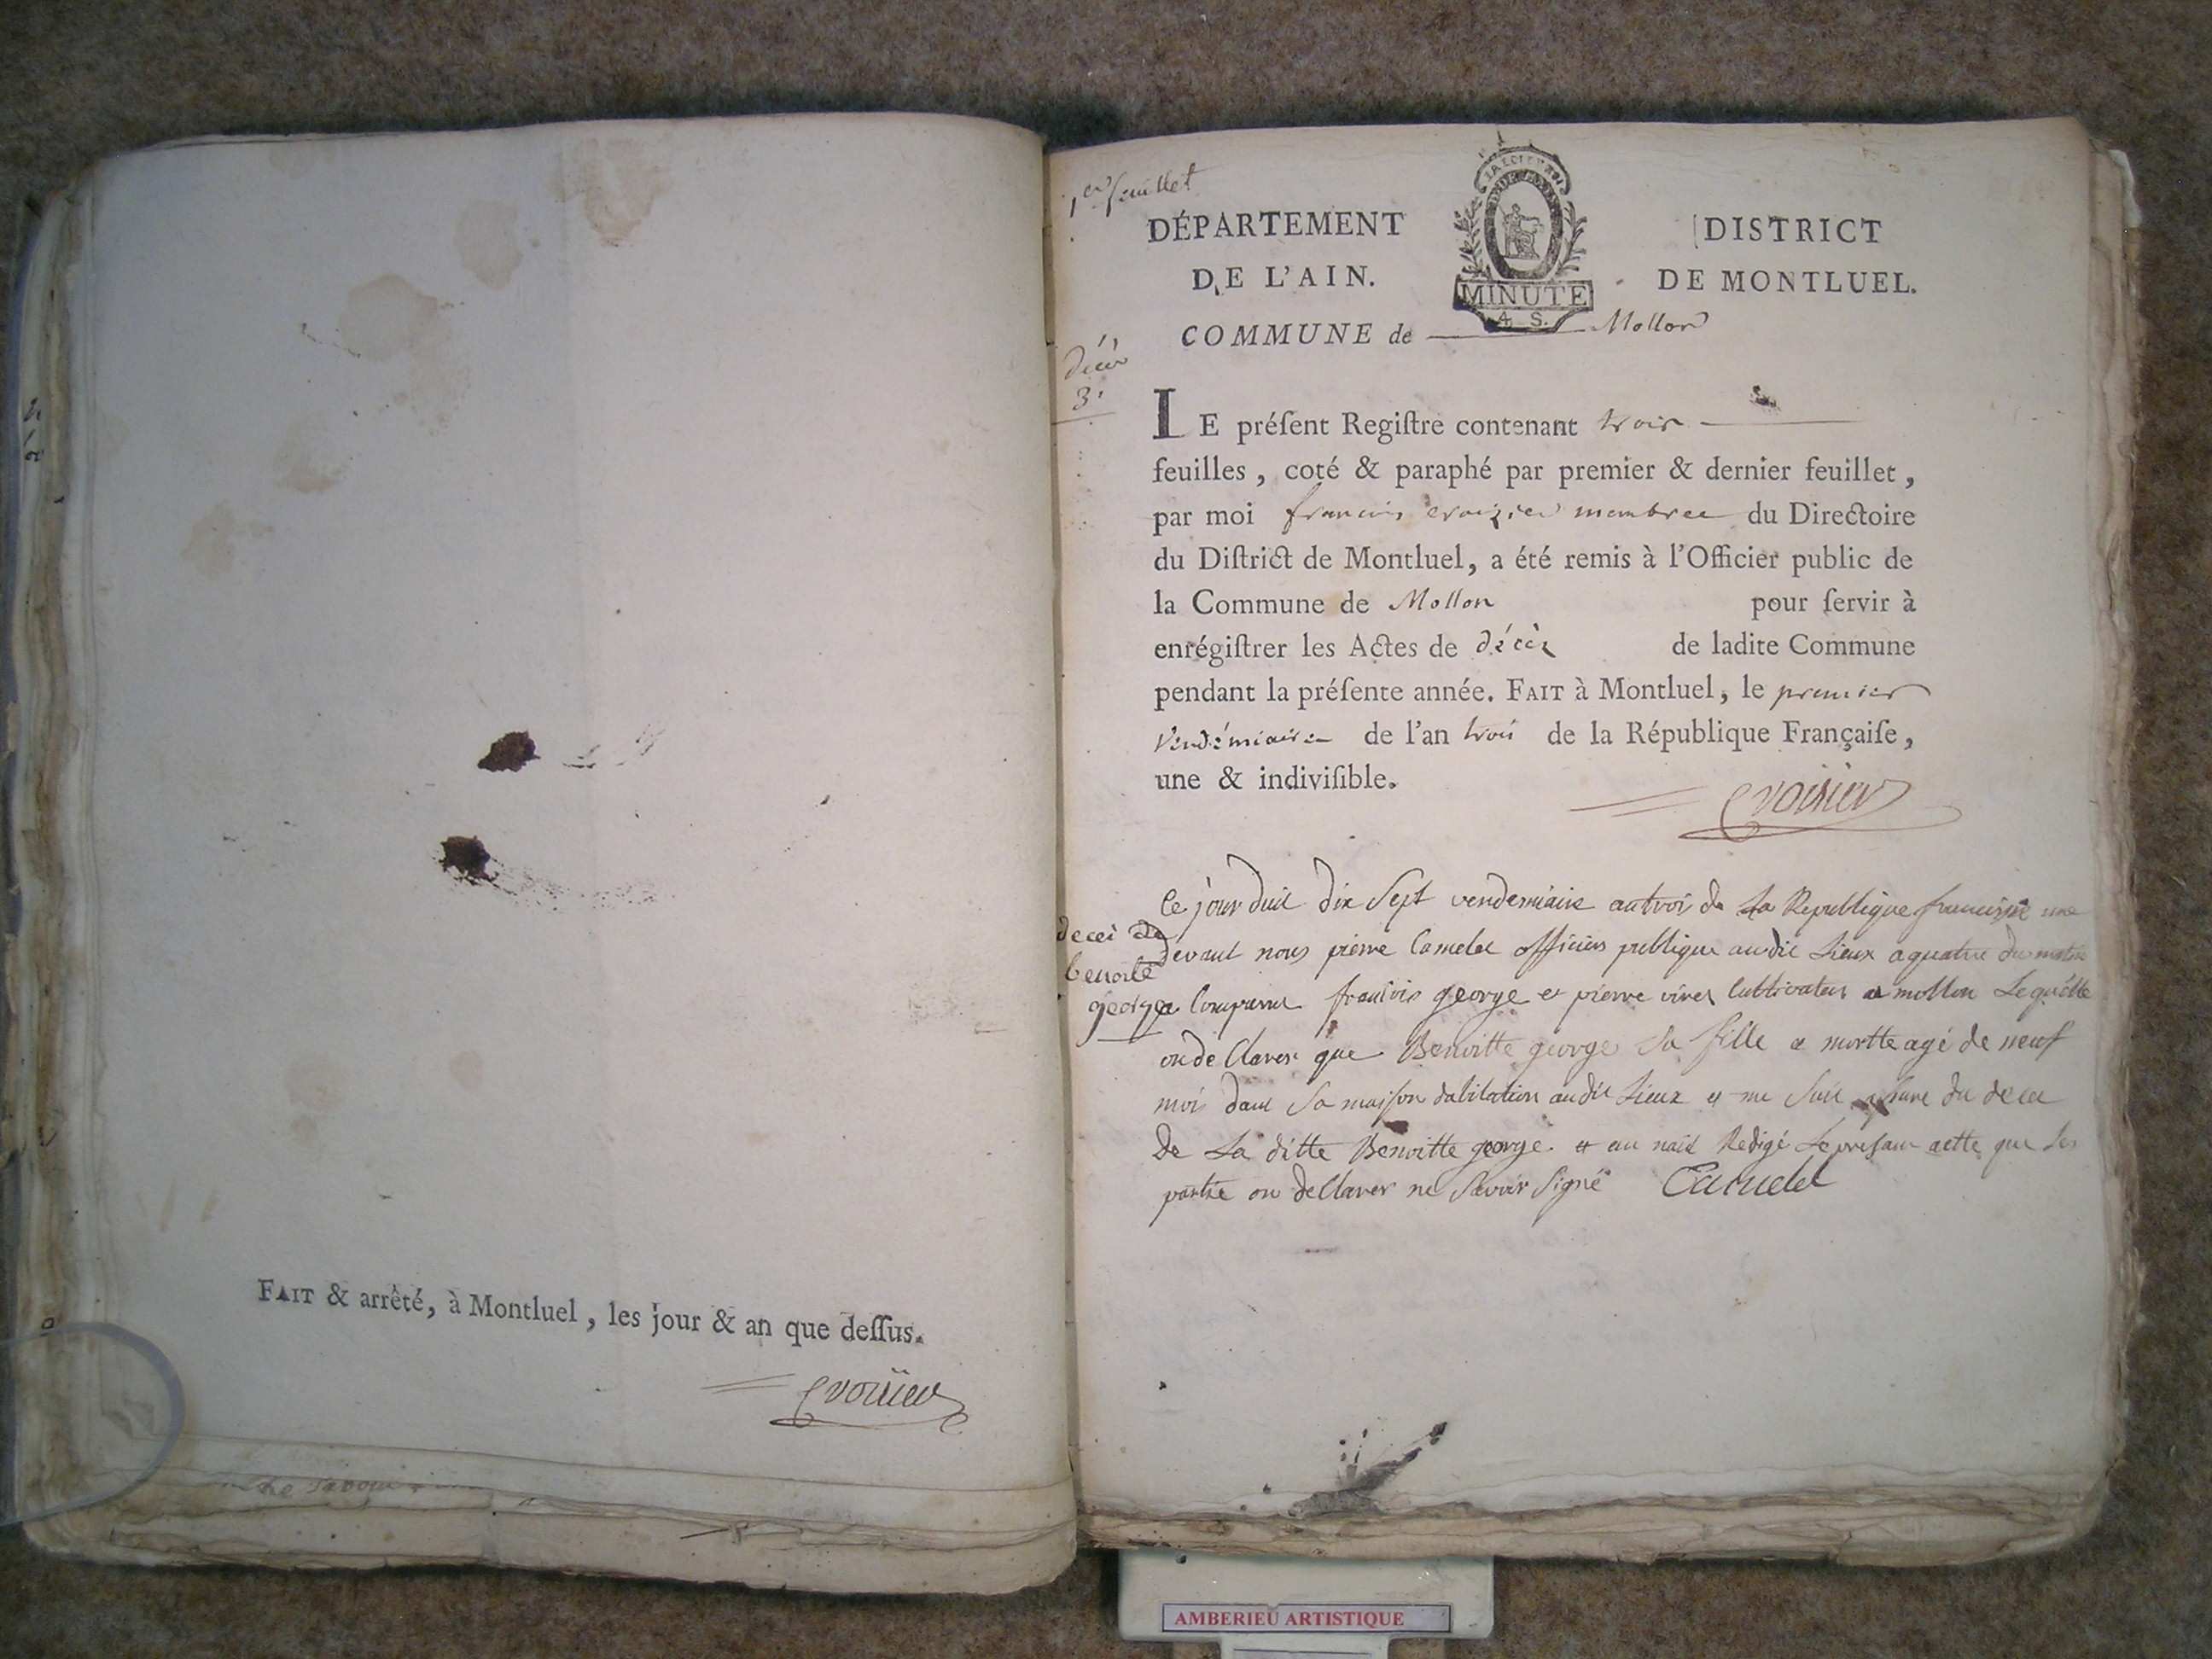 FAIT & arrêté, à Montluel, les jour & an que deſſus.
1er feuillet
DÉPARTEMENT
DE L'AIN.
DISTRICT
DE MONTLUEL.
MINUTE
4 S.
COMMUNE de Mollon
décès
3.
LE préſent Regiſtre contenant trois
feuilles, coté & paraphé par premier & dernier feuillet,
par moi françois membre du Directoire
du Diſtrict de Montluel, a été remis à l'Officier public de
la Commune de Mollon pour ſervir à
enrégiſtrer les Actes de décès de ladite Commune
pendant la préſente année. FAIT à Montluel, le premier
Vendémiaire de l'an trois de la République Françaiſe,
une & indiviſible.
decei de
benoite
george
Ce jour duit dix Sept vendemiaire an troi de La Republique francoise une
devant nous pierre Camelet officier publique audit Lieux a quatre du matin
Comparu francois george et pierre cultivateur a mollon Lequelle
on de Clarer que Benoitte george sa fille a mortte agé de neuf
moi dans sa maison dabitation audit Lieux et me suit du dece
de La ditte Benoitte george et au nait Redigé Le presant actte que les
partie on de Clarer ne savoir signé Camelet
AMBERIEU ARTISTIQUE